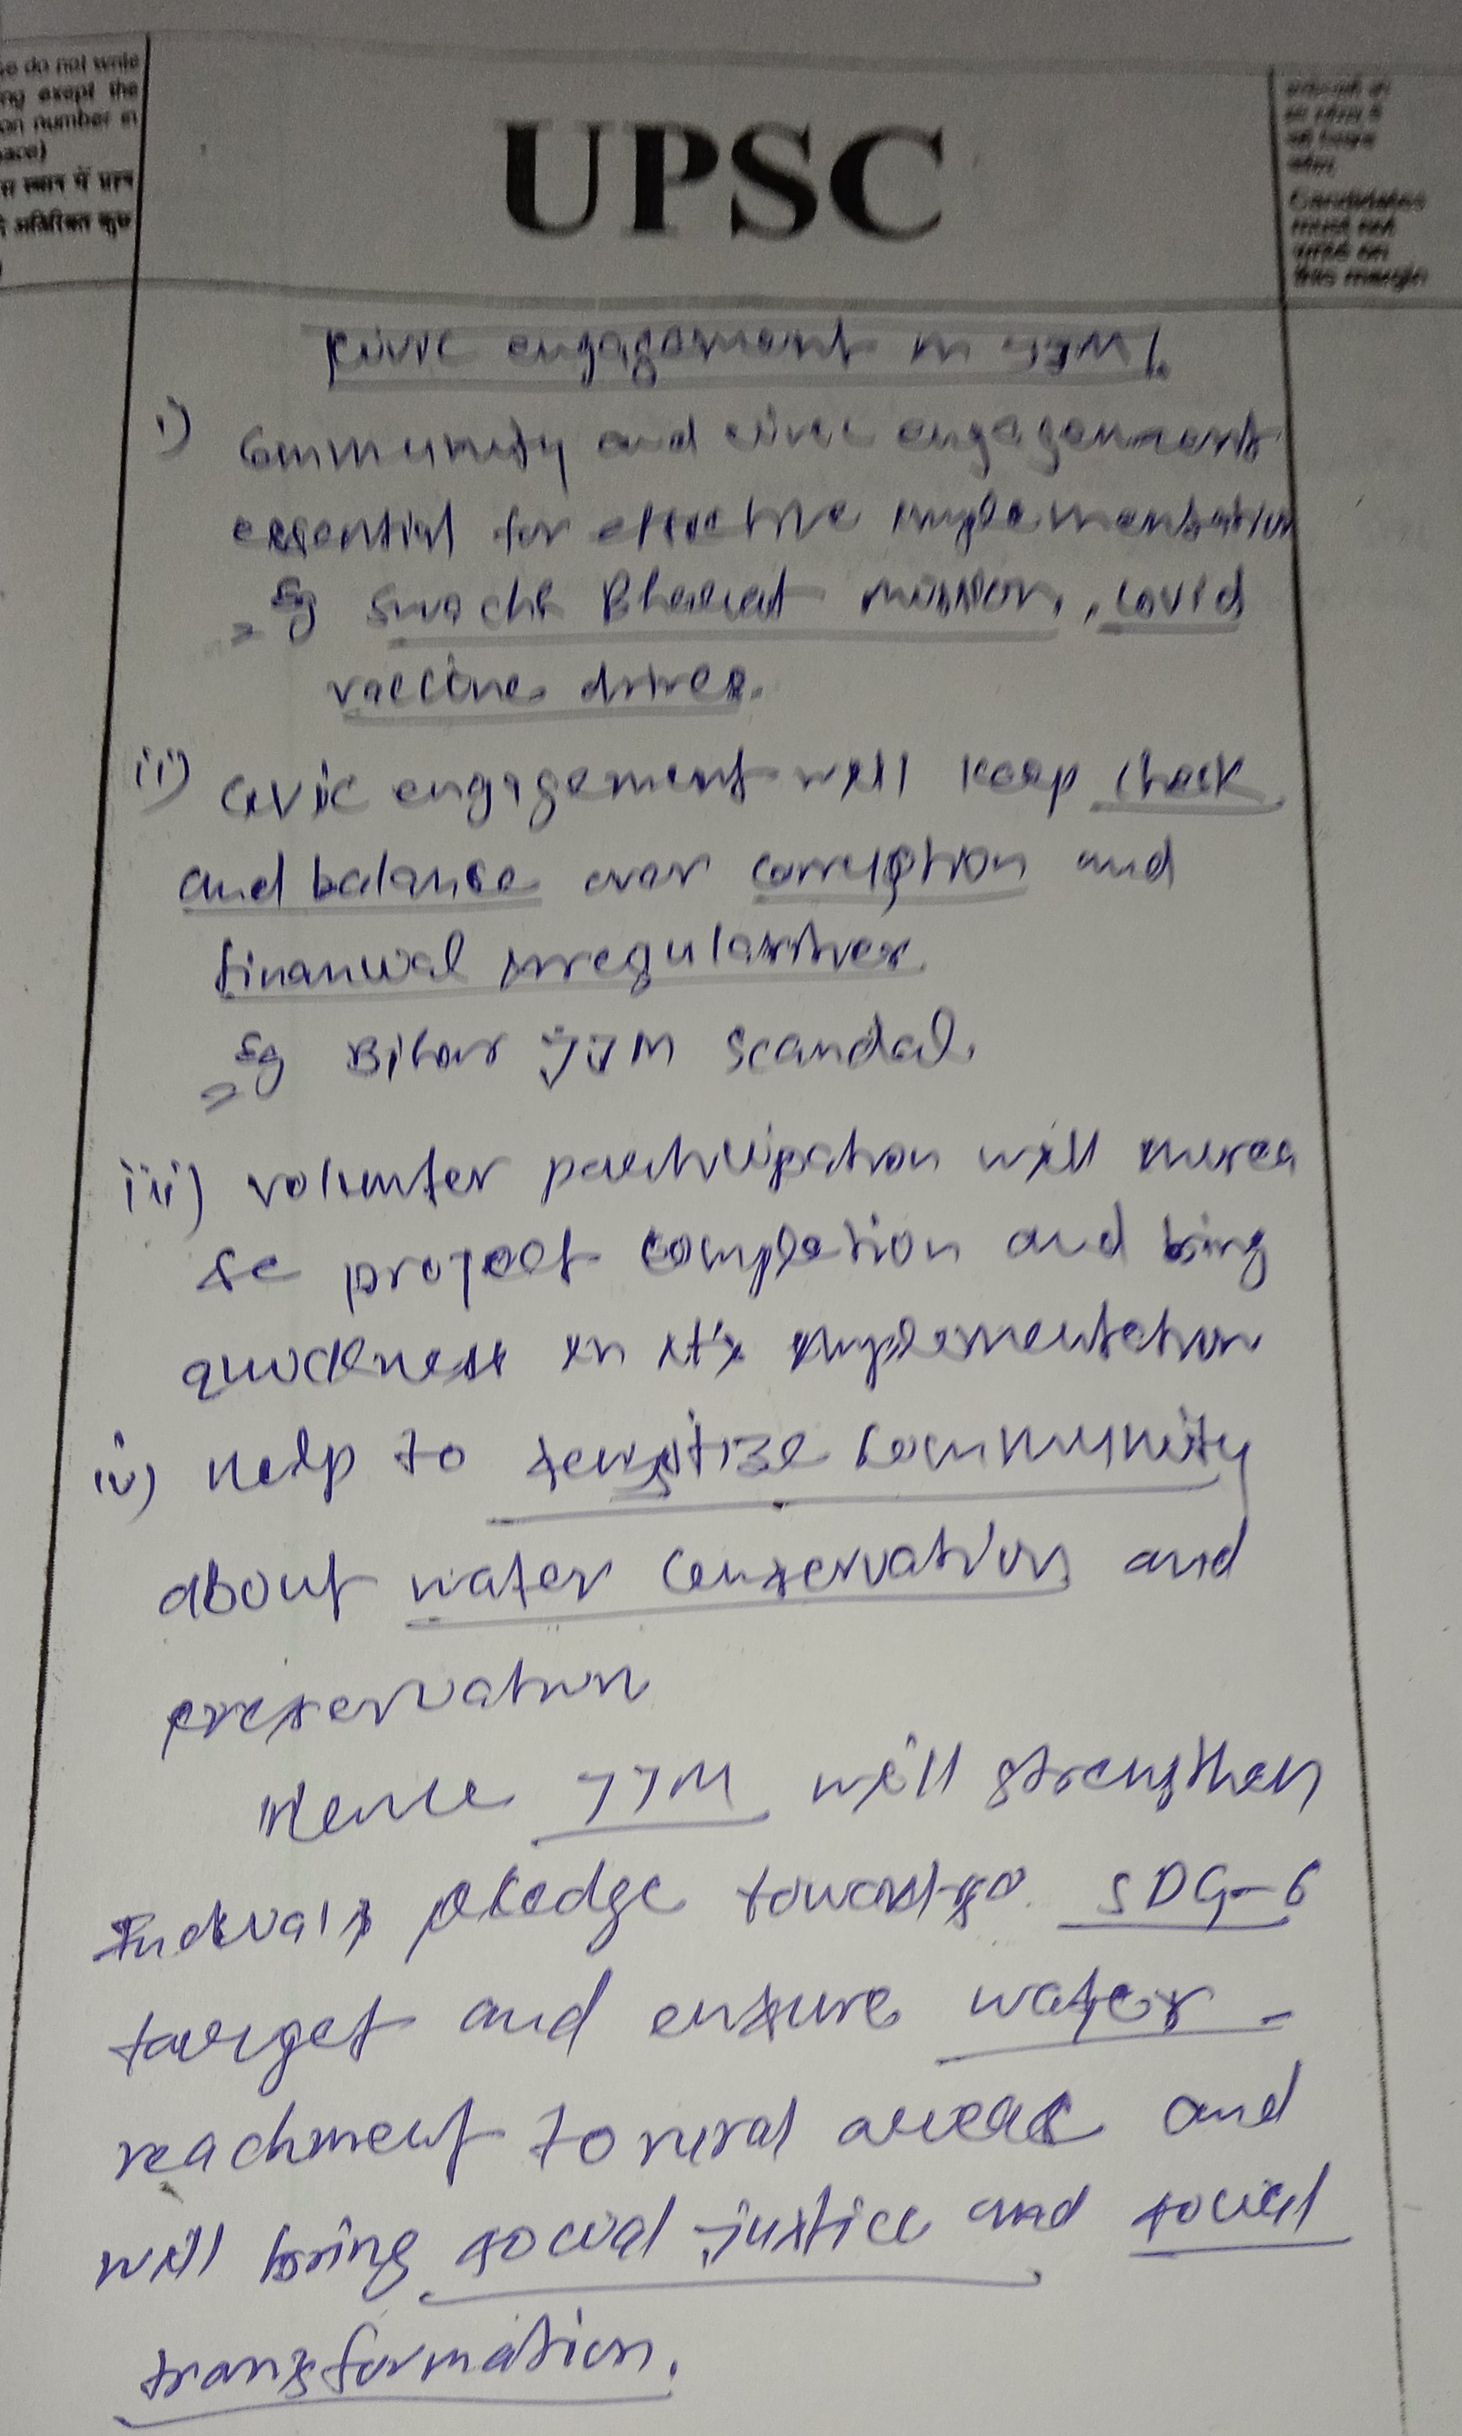 se do not write
ng exept the
on number in
ace)
स स्थान में प्रश्न
अतिरिक्त कुछ
UPSC
Candidates
must not
write on
this margin
Civic engagement in JJM.
i) Community and civic engagement
essential for effective implementation
Eg Swachh Bharat mission, covid
vaccine drives.
ii) Civic engagement will keep check
and balance over corruption and
financial irregularities.
Eg Bihar JJM scandal.
iii) volunter participation will increa
se project completion and bring
quickness in it's implementation
iv) Help to sensitize community
about water conservation and
preservation
Hence JJM will strengthen
India's pledge towards SDG-6
target and ensure water
reachment to rural areas and
will bring social justice and social
transformation.